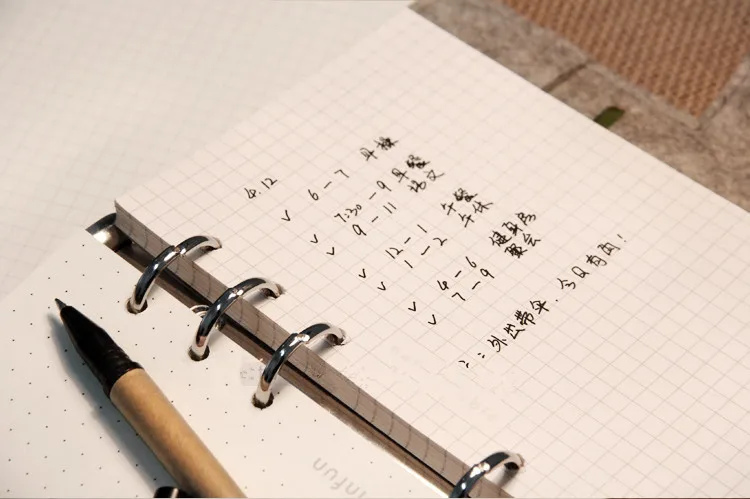 4.12
✓ 6-7 早操
✓ 7:30-9 早餐
✓ 9-11 语文
✓ 12-1 午餐
✓ 1-2 午休
✓ 4-6 健身房
✓ 7-9 聚会
外出带伞.今日有雨!
Infun